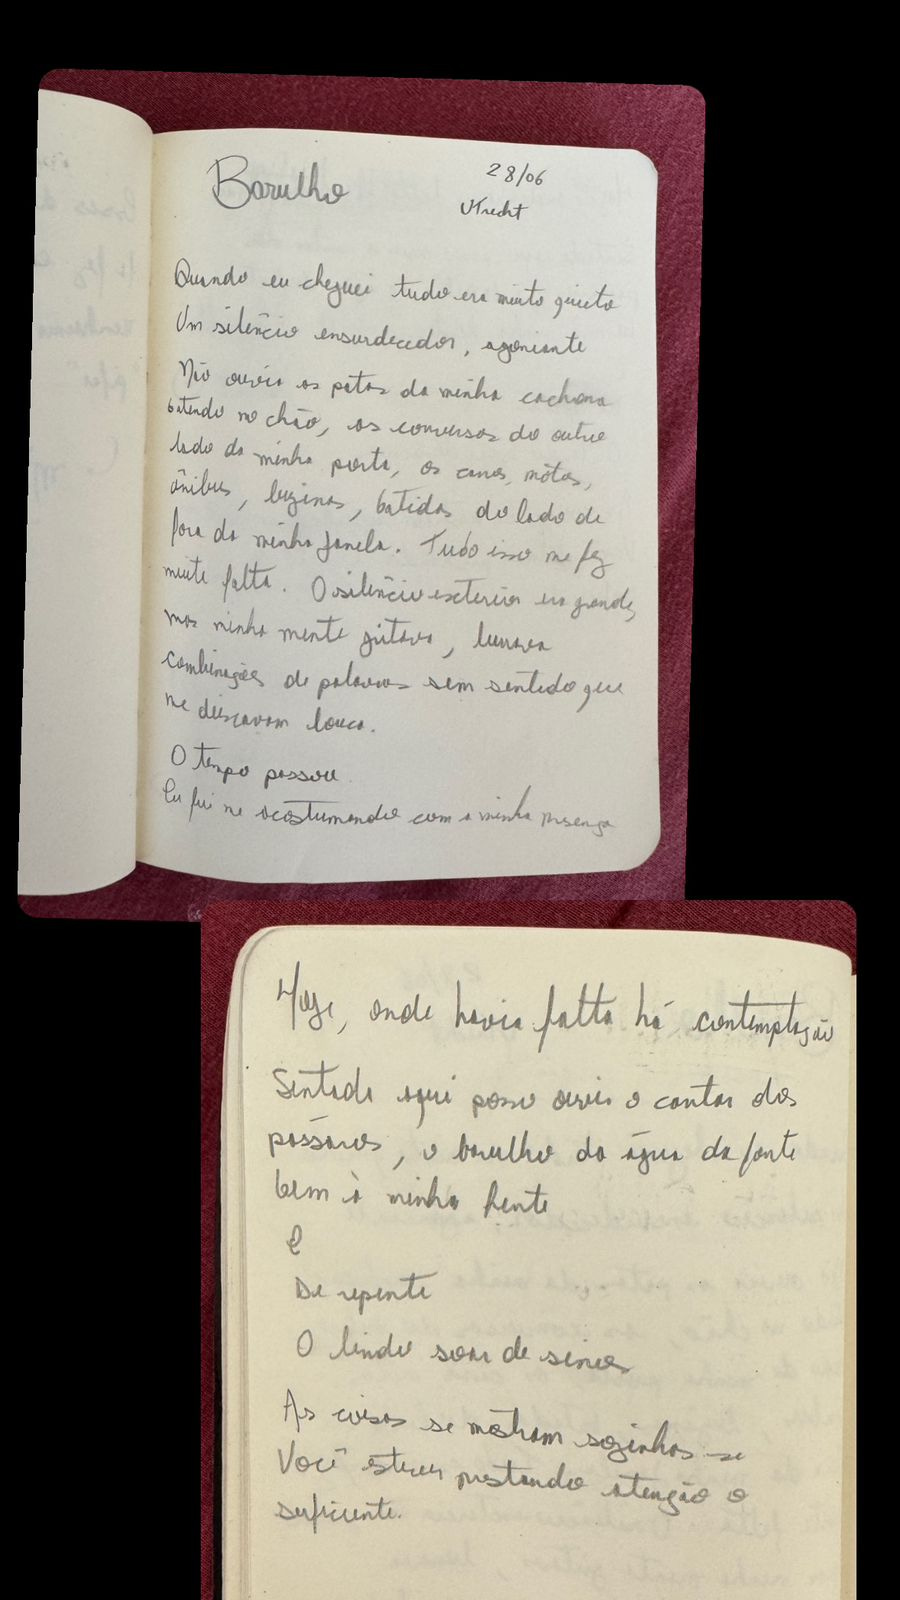 Barulho
28/06
Utrecht
Quando eu cheguei tudo era muito quieto
Um silêncio ensurdecedor, agoniante
Não ouvia as patas da minha cachorra
batendo no chão, as conversas do outro
lado da minha porta, os carros, motos,
ônibus, buzinas, batidas do lado de
fora da minha janela. Tudo isso me fez
muita falta. O silêncio exterior era grande,
mas minha mente gritava, berrava
combinações de palavras sem sentido que
me deixavam louca.
O tempo passou
Eu fui me acostumando com a minha presença
Hoje, onde havia falta há contemplação
Sentada aqui posso ouvir o cantar dos
pássaros, o barulho da água da fonte
bem à minha frente
E
De repente
O lindo soar de sinos
As coisas se mostram sozinhas se
Você estiver prestando atenção o
suficiente.